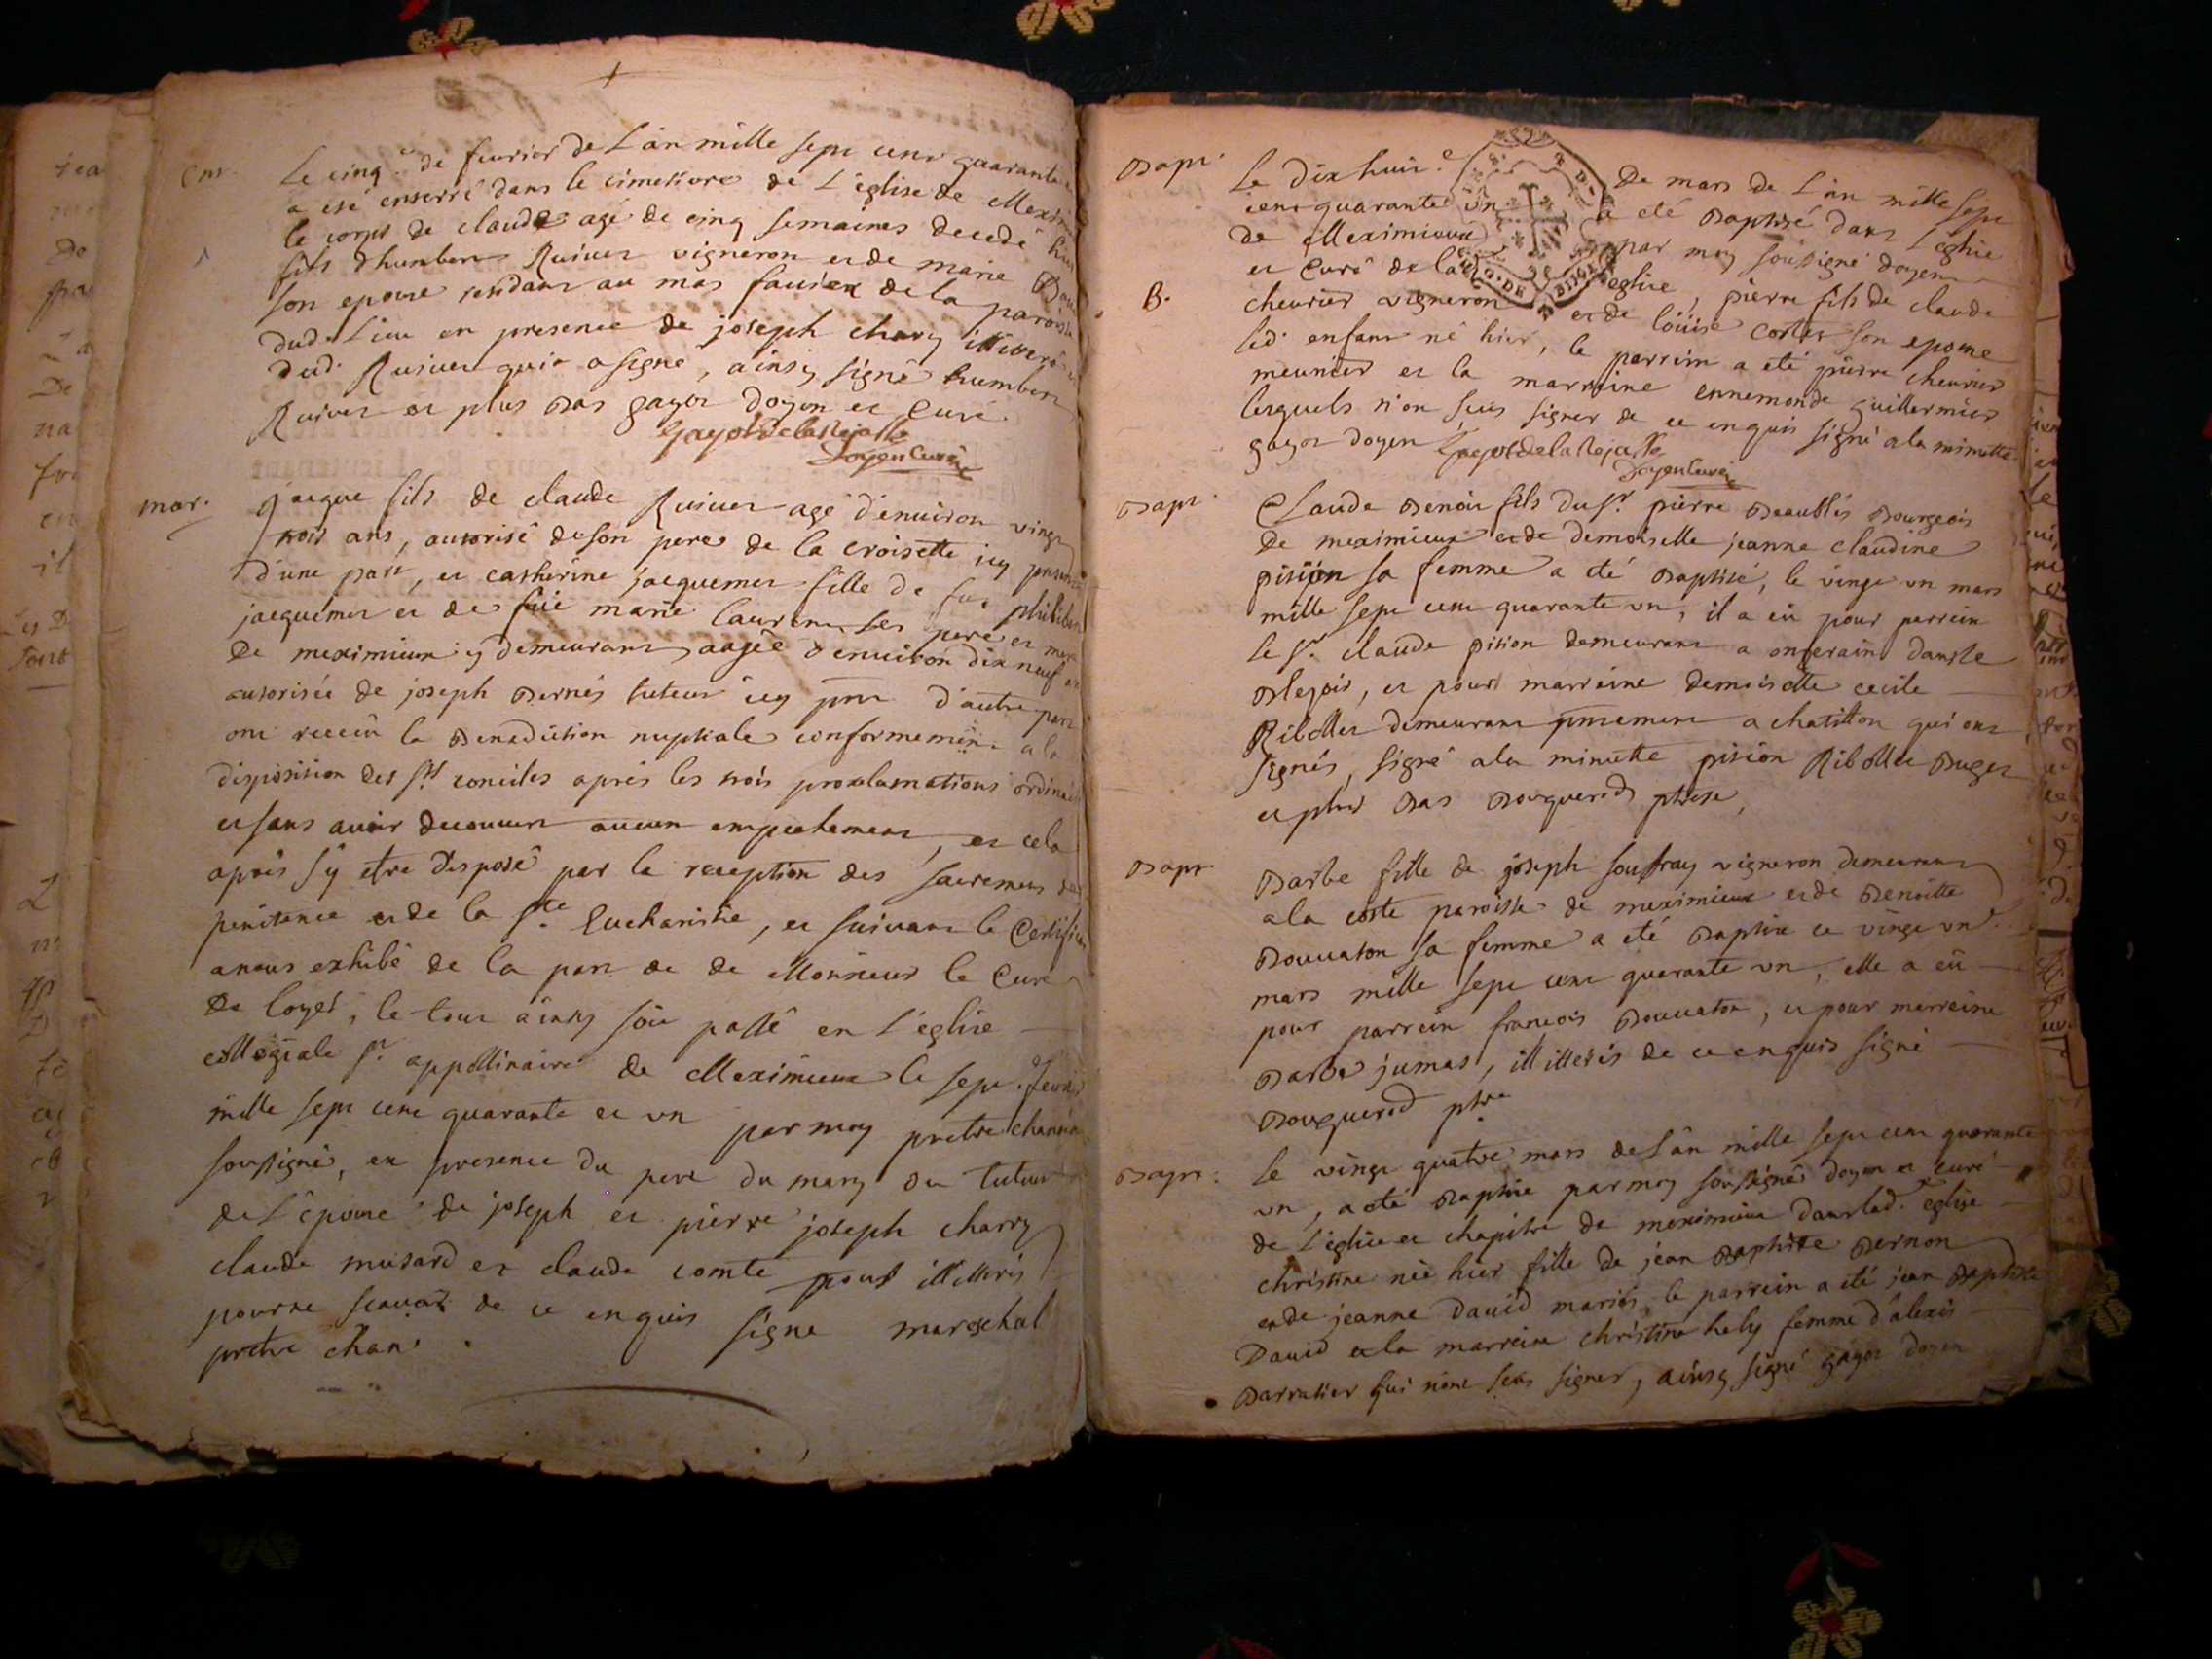 Ent.
Le cinq.e de feurier de L'an mille sept cent quarante
a eté enterré dans le cimetiere de L'eglise de Mexim
le corps de claude agé de cinq semaines decedé hier
fils d'humbert Ruivet vigneron et de marie
son epouse residant au mas de la paroisse
dud. Lieu en presence de joseph chary illiteré et
dud. Ruivet qui a signé, ainsy signé humbert
Ruivet et plus bas gayot doyen et Curé.
Gayot de la Rejasse
Doyen Curé
mar.
jacque fils de claude Ruivet agé d'enuiron vingt
trois ans, autorisé de son pere de la croisette icy present
d'une part, et catherine jacquemet fille de feu philibert
jacquemet et de feüe marie laurent ses pere et mere
de meximieux y demeurant, aagée d'enuiron dix neuf an
autorisée de joseph bernés tuteur icy pnt d'autre part
ont receü la benediction nuptiale conformement a la
disposition des sts conciles aprés les trois proclamations ordinaires
et sans avoir decouuert aucun empechement, et cela
aprés s'y etre disposé par la reception des sacremens de
penitence et de la ste Eucharistie, et suivant le Certificat
a nous exhibé de la part de de Monsieur le Curé
de loyes, le tout ainsy fait passé en l'eglise
collegiale st appollinaire de Meximieux le sept feurier
mille sept cent quarante et un par moy pretre chanoine
soussigné, en presence du pere du mary du tuteur
de L'epouse de joseph et pierre joseph charry
claude musard et claude comte tous illiterés
pour ne scauoir de ce enquis signe mareschal
pretre chan.
Bapt.
B.
Le dix huit.e De mars de L'an mille sept
cent quarante un a eté baptisé dans L'eglise
de Meximieux par moy soussigné doyen
et Curé de lad. eglise, pierre fils de claude
cheurier vigneron et de loüise cortet son epouse
led. enfant né hier, le parrein a eté pierre cheurier
meunier et la marreine ennemonde guillermier
lesquels n'ont sceu signer de ce enquis signé a la minutte
gayot doyen Gayot de la Rejasse
Doyen Curé
Bapt.
Claude benoit fils du sr. pierre beaublés bourgeois
de meximieux et de demoiselle jeanne claudine
pision sa femme a eté baptisé, le vingt un mars
mille sept cent quarante un, il a eü pour parrein
le sr. claude pision demeurant a dans le
et pour marreine demoiselle cecile
Ribollet demeurant pntement a chatillon qui ont
signés, signé a la minutte pision Ribollet buget
et plus bas bouquerod ptre,
Bapt
Barbe fille de joseph souffray vigneron demeurant
a la coste paroisse de meximieux et de benoitte
bouuaton sa femme a eté baptisée ce vingt un
mars mille sept cent quarante un, elle a eü
pour parrein francois bouuaton, et pour marreine
barbe jumas, illitterés de ce enquis signé
bouquerod ptre
Bapt.
Le vingt quatre mars de L'an mille sept cent quarante
un, a eté baptisée par moy soussigné doyen et curé
de L'eglise et chapitre de meximieux dans lad. eglise
christine née hier fille de jean baptiste bernon
et de jeanne dauid mariés, le parrein a eté jean baptiste
Dauid et la marreine christine hely femme d'alexis
barratier qui n'ont sceu signer, ainsy signé gayot doyen